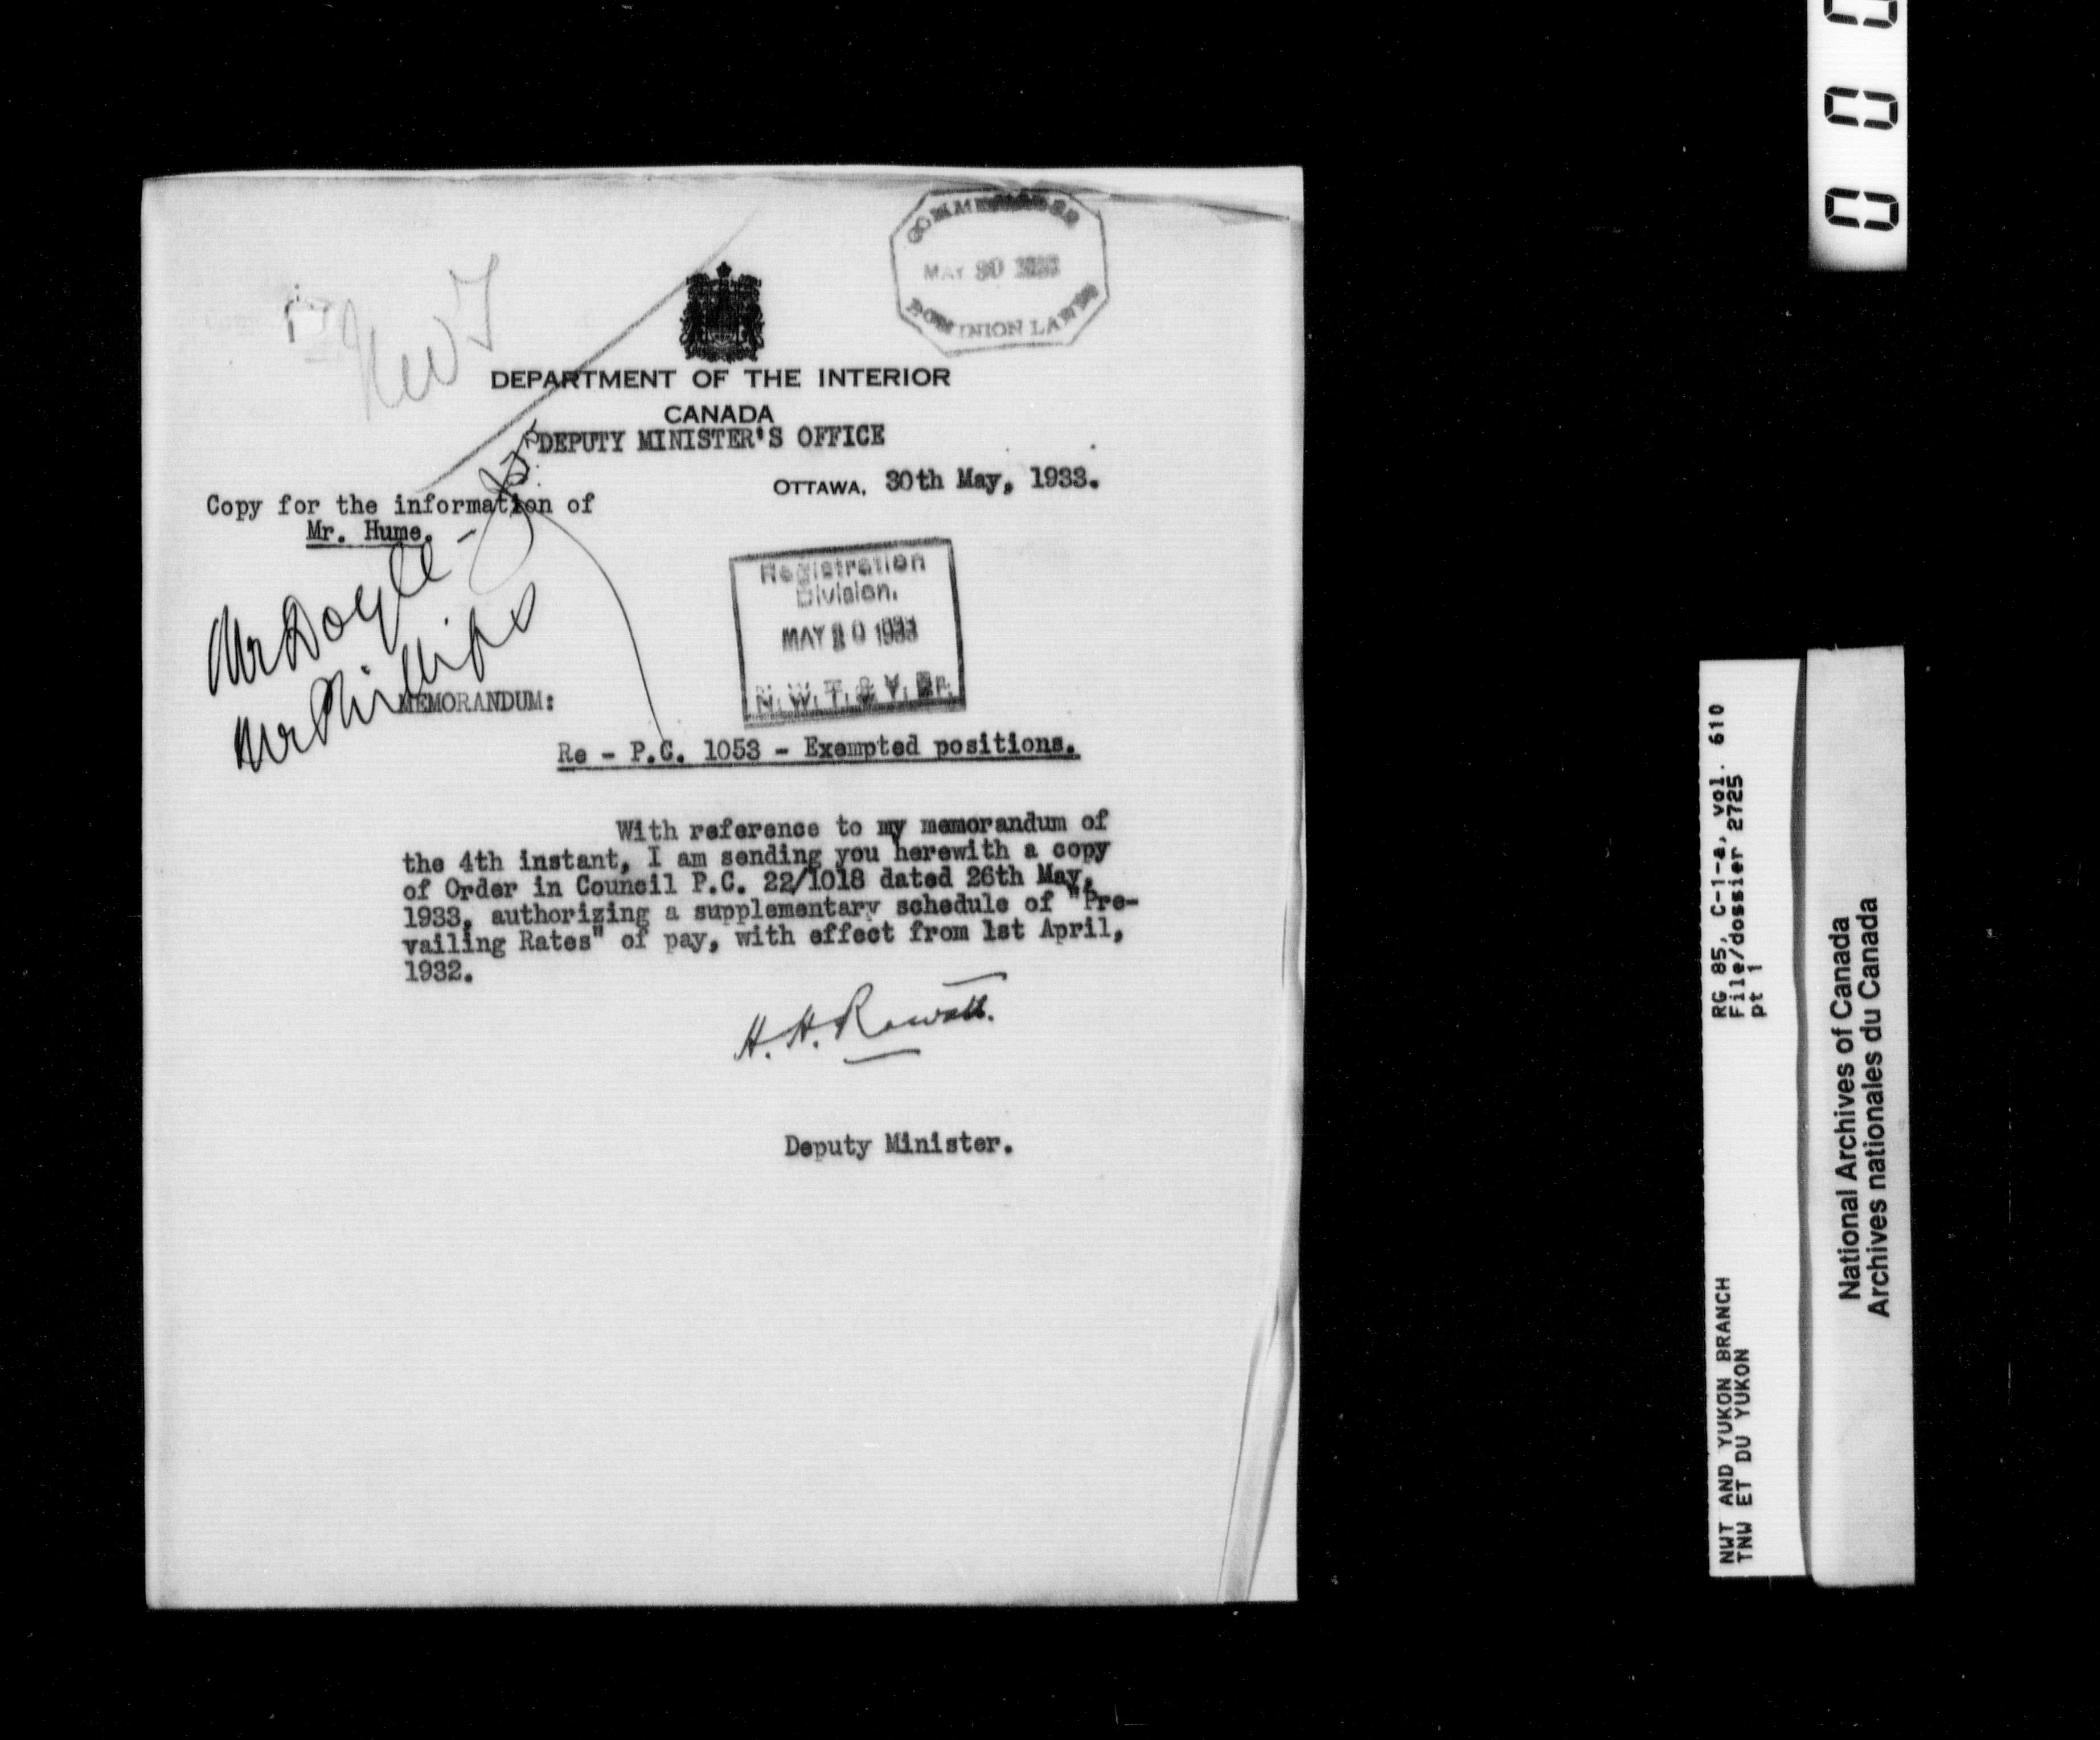 NWT
COMMISSIONER
MAY 30 1933
DOMINION LANDS
DEPARTMENT OF THE INTERIOR
CANADA
DEPUTY MINISTER'S OFFICE
OTTAWA, 30th May, 1933.
Copy for the information of
Mr. Hume.
Mr Doyle -
Mr Phillips
Registration
Division.
MAY 30 1933
N. W. T. & Y. Br.
MEMORANDUM:
Re - P.C. 1053 - Exempted positions.
With reference to my memorandum of
the 4th instant, I am sending you herewith a copy
of Order in Council P.C. 22/1018 dated 26th May,
1933, authorizing a supplementary schedule of "Pre-
vailing Rates" of pay, with effect from 1st April,
1932.
H. H. Rowatt.
Deputy Minister.
0 0 0
RG 85, C-1-a, vol. 610
File/dossier 2725
pt 1
NWT AND YUKON BRANCH
TNW ET DU YUKON
National Archives of Canada
Archives nationales du Canada